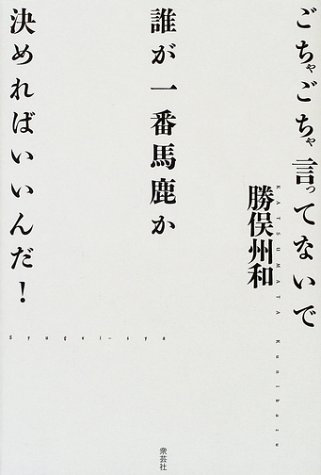 ごちゃごちゃ言ってないで
勝俣州和
KATSUMATA Kunikazu
誰が一番馬鹿か
決めればいいんだ!
Syugei-sya
衆芸社